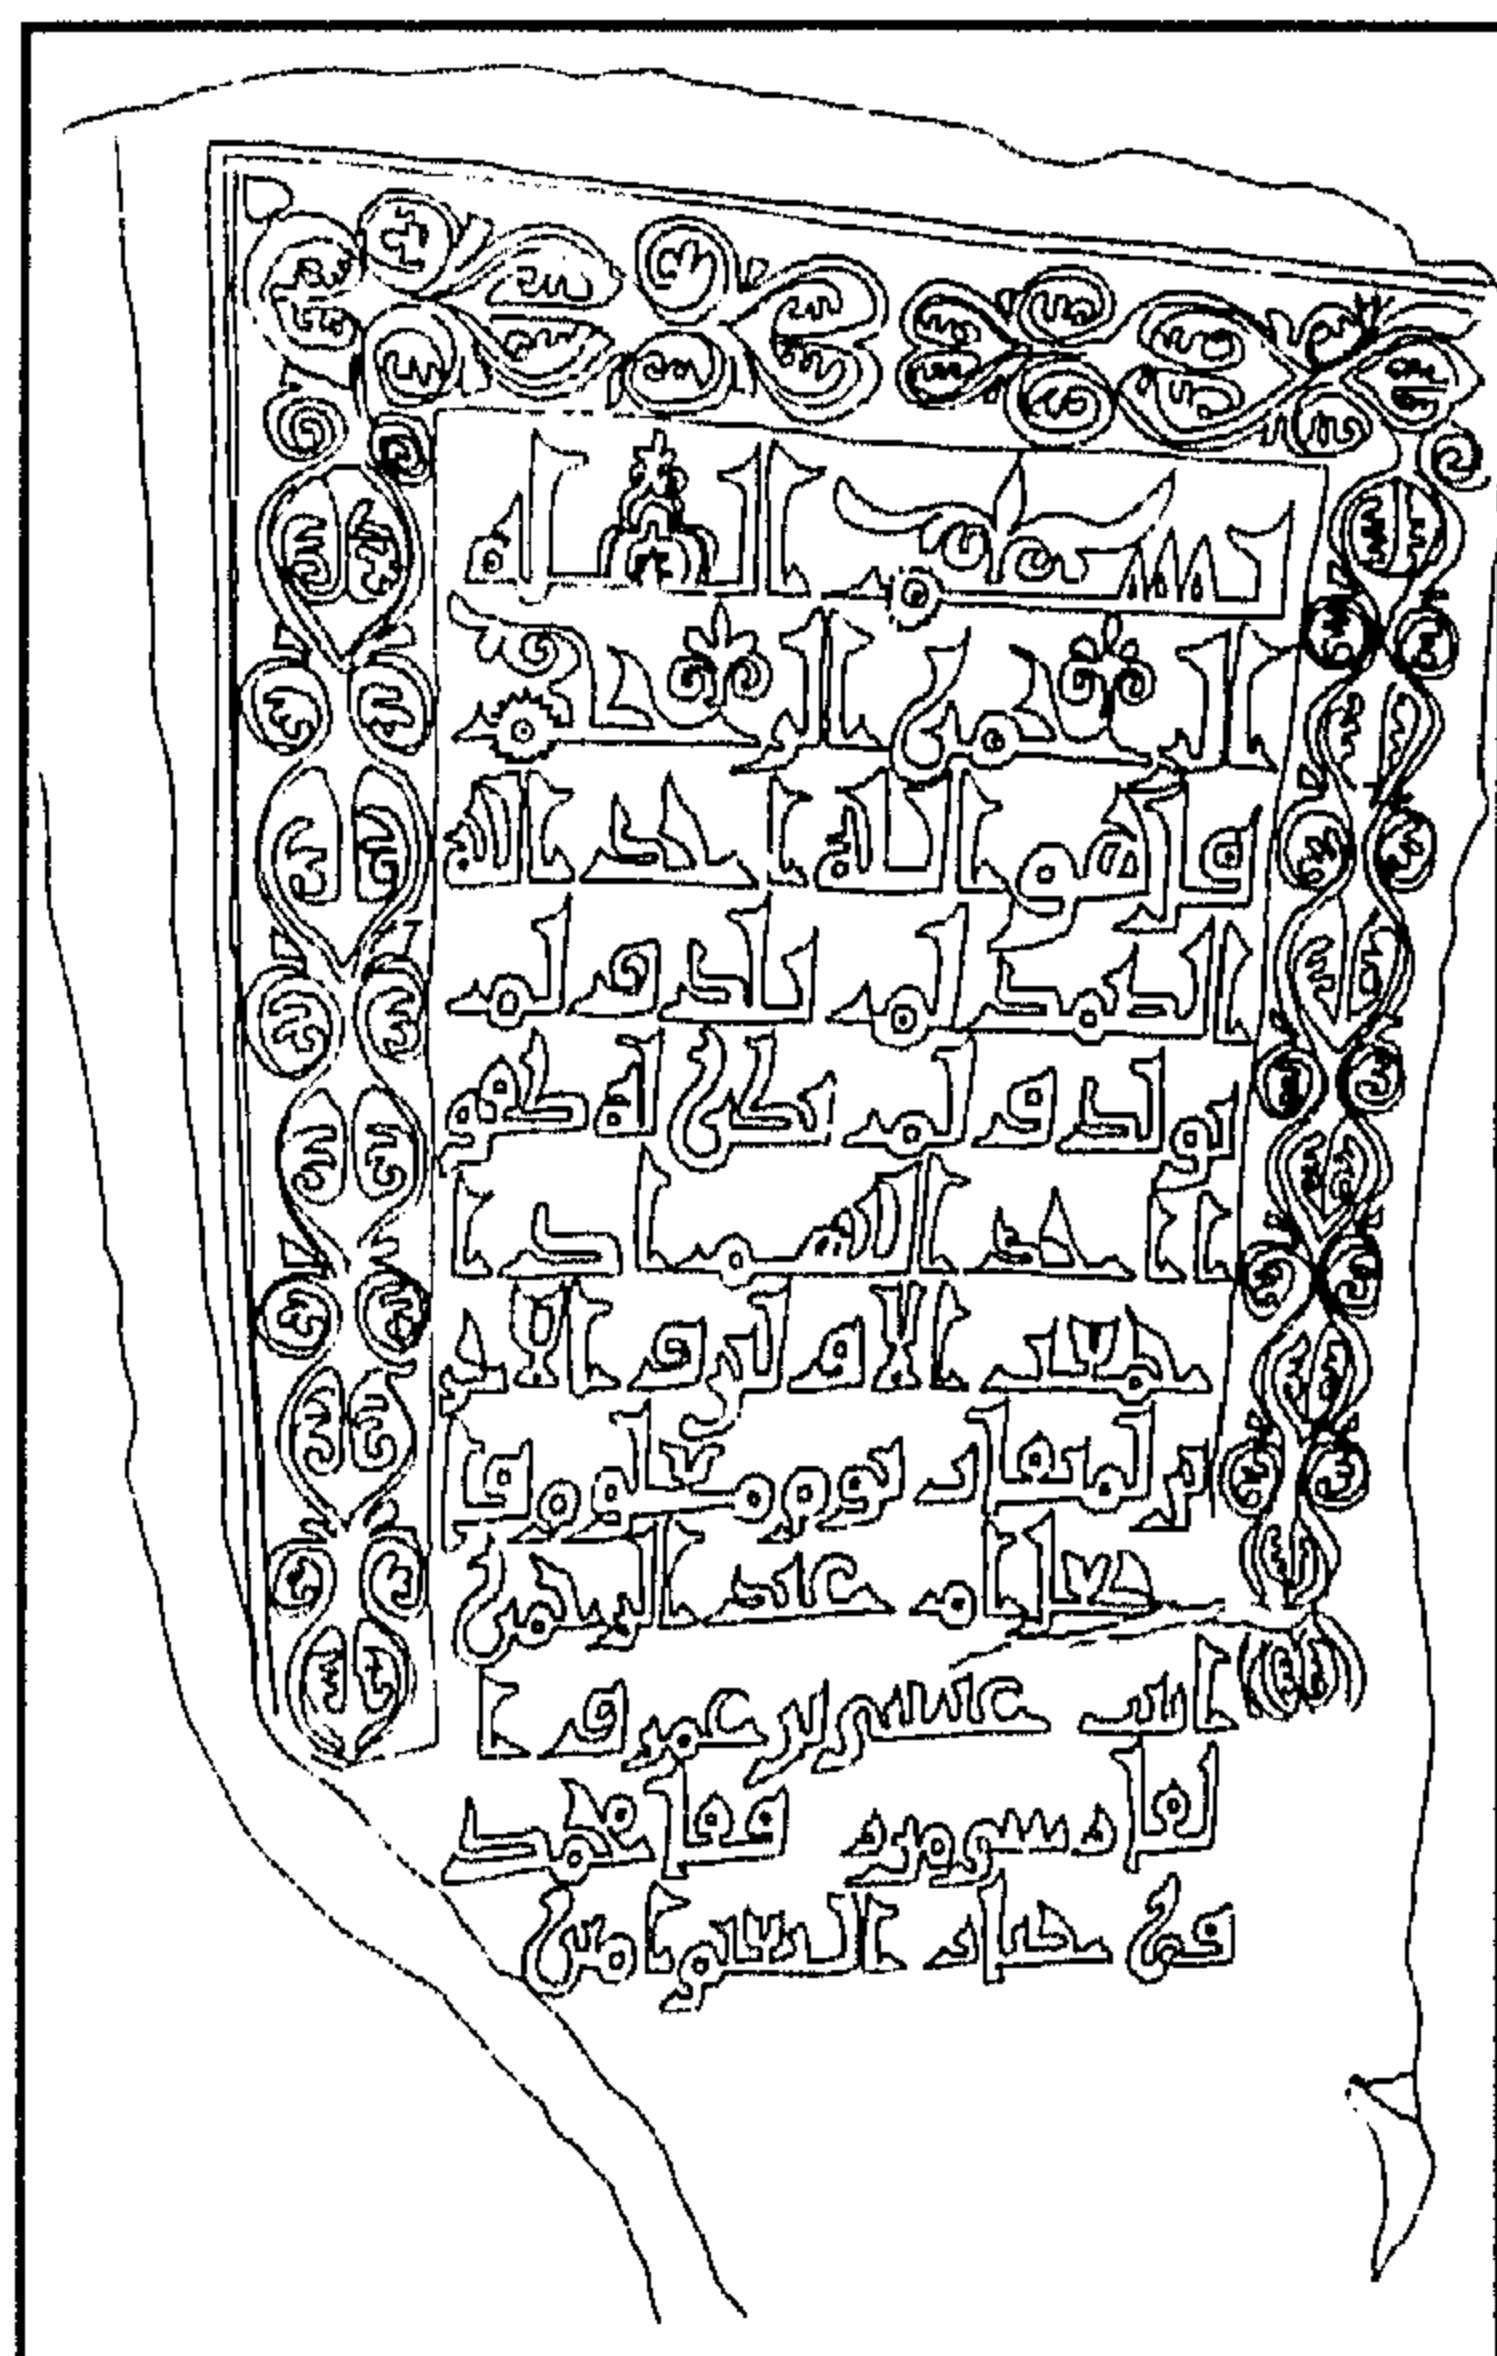 بسم الله
الرحمن الرحيم
قل هو الله احد الله
الصمد لم يلد ولم
يولد ولم يكن له كفو
ا احد اللهم اذا
جمعت الاولين والاخر
ين لميقات يوم معلوم فا
جعل ام عبد الرحمن
ابنت عيسى بن عمر
من رفقا محمد
في جنات النعيم امين